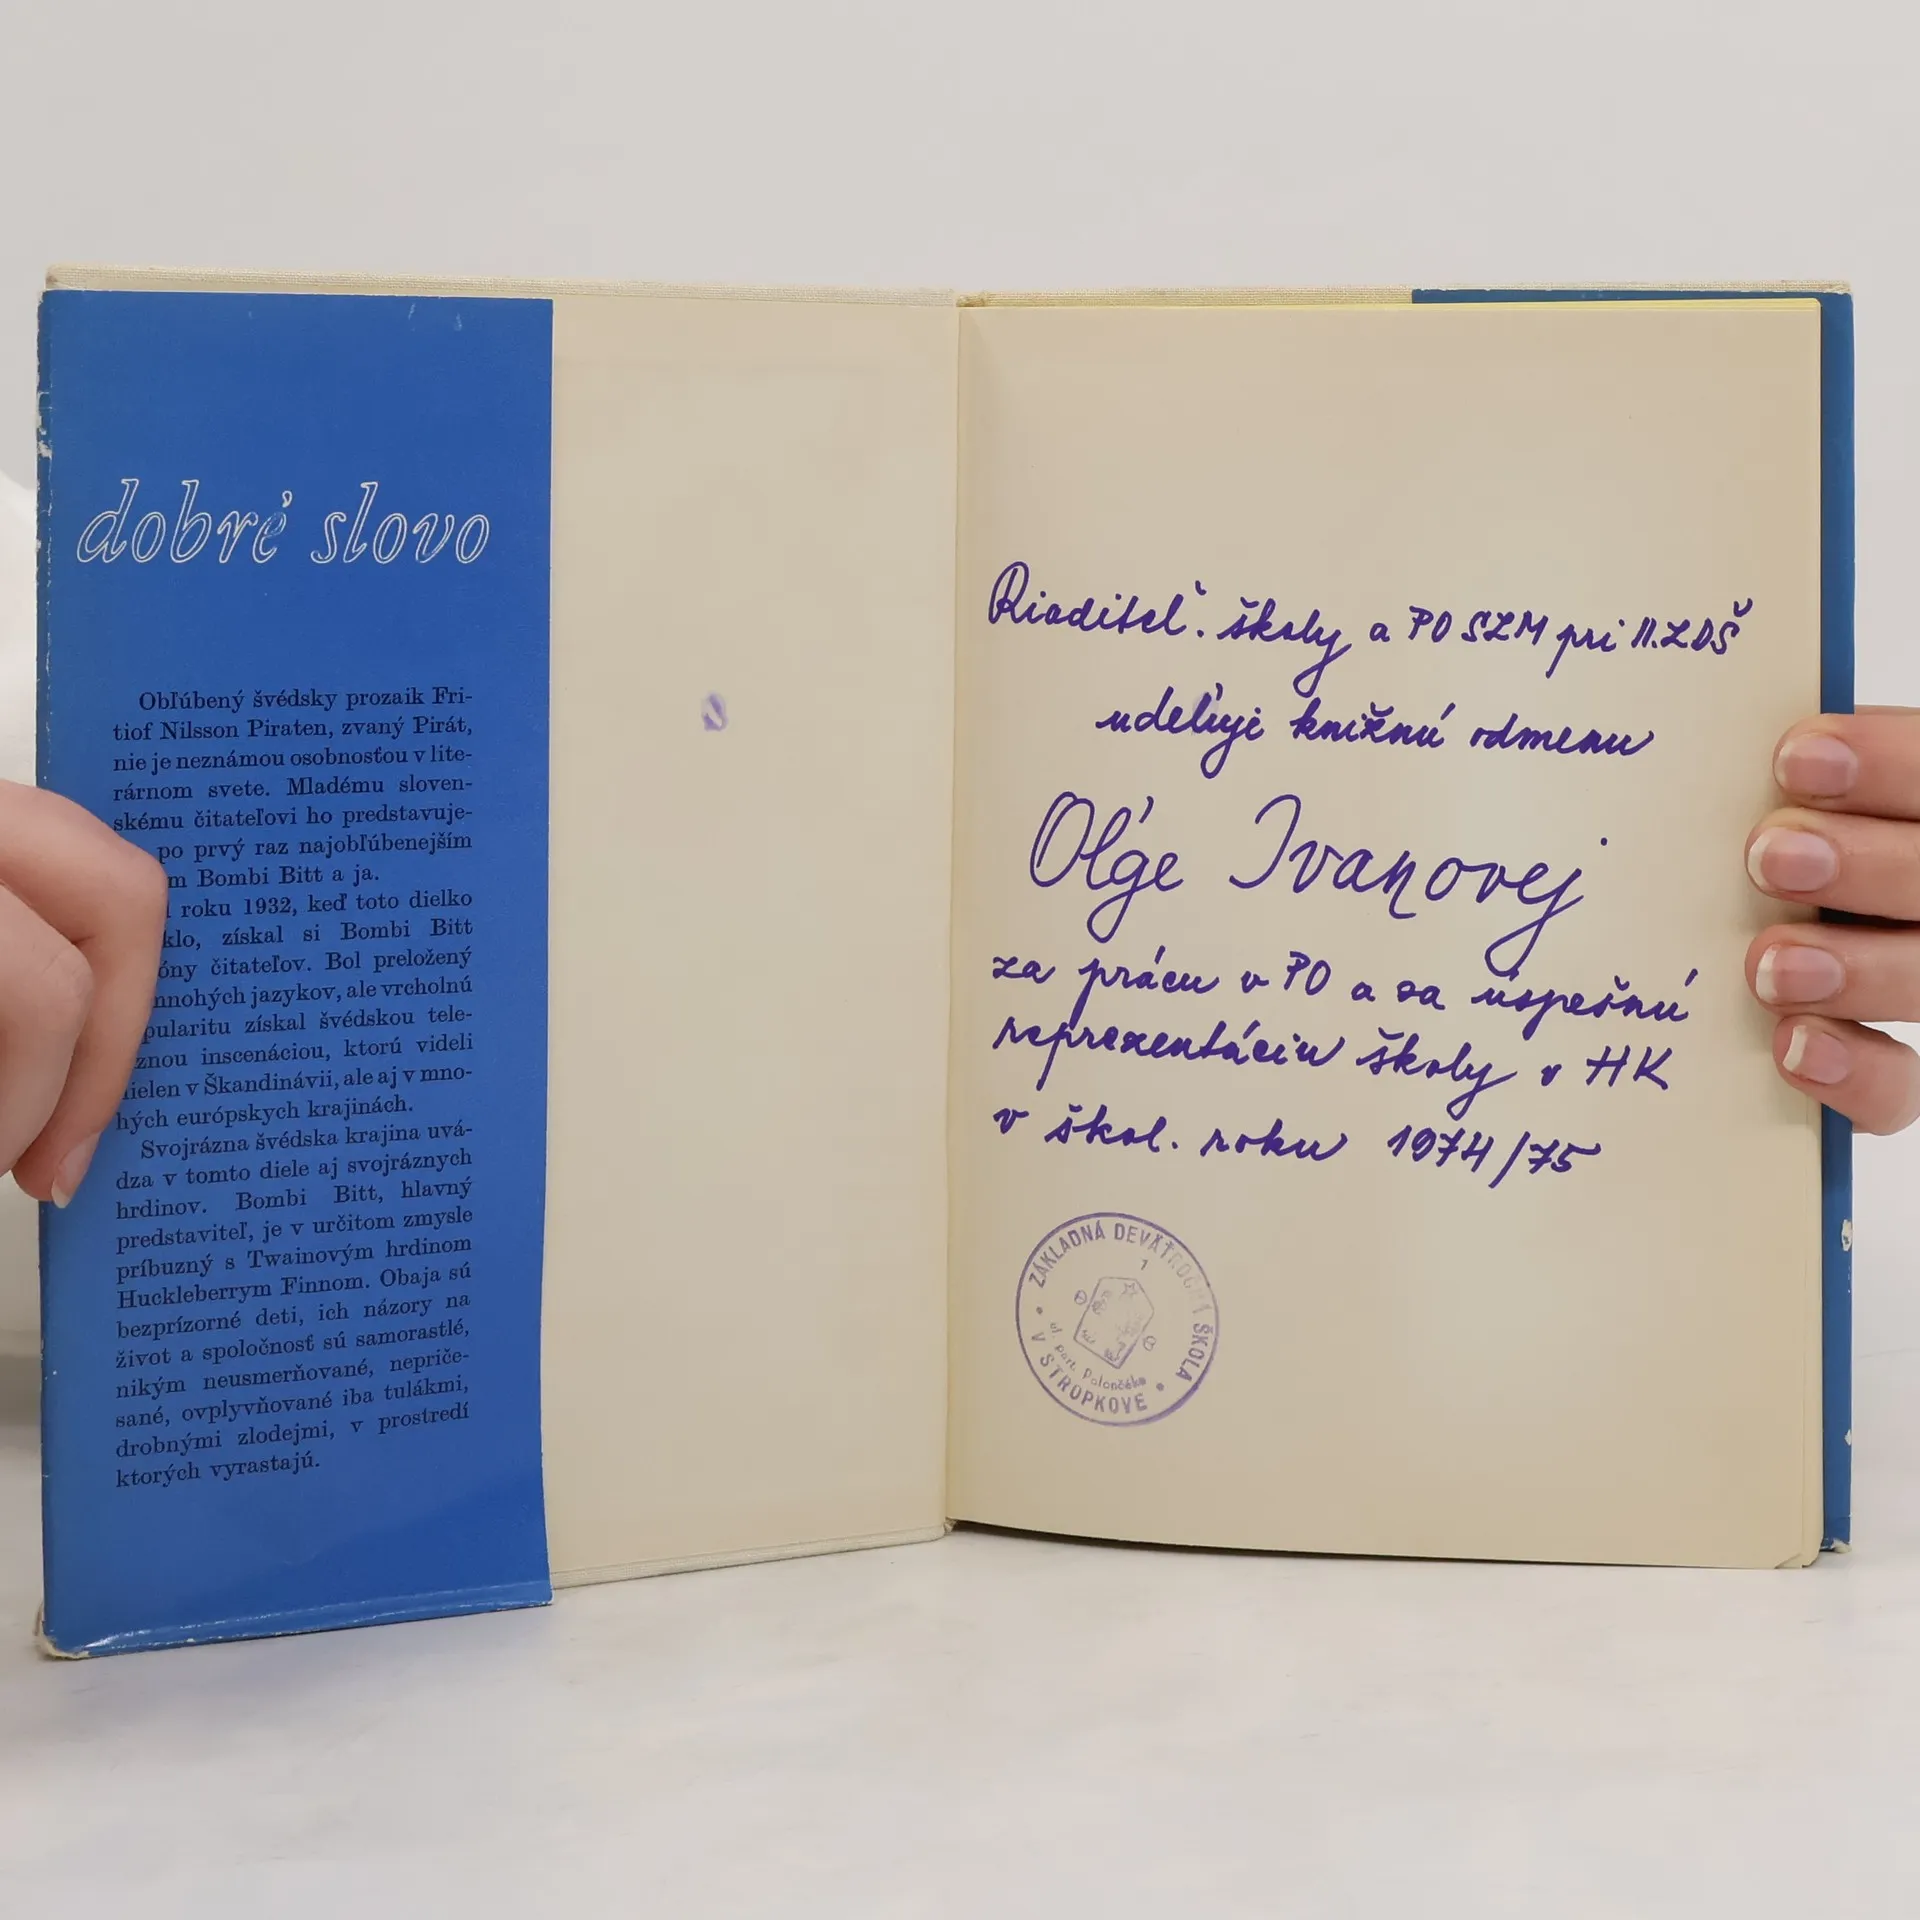 dobré slovo
Obľúbený švédsky prozaik Fri-
tiof Nilsson Piraten, zvaný Pirát,
nie je neznámou osobnosťou v lite-
rárnom svete. Mladému sloven-
skému čitateľovi ho predstavuje-
po prvý raz najobľúbenejším
m Bombi Bitt a ja.
roku 1932, keď toto dielko
klo, získal si Bombi Bitt
óny čitateľov. Bol preložený
mnohých jazykov, ale vrcholnú
pularitu získal švédskou tele-
znou inscenáciou, ktorú videli
nielen v Škandinávii, ale aj v mno-
hých európskych krajinách.
Svojrázna švédska krajina uvá-
dza v tomto diele aj svojráznych
hrdinov. Bombi Bitt, hlavný
predstaviteľ, je v určitom zmysle
príbuzný s Twainovým hrdinom
Huckleberrym Finnom. Obaja sú
bezprízorné deti, ich názory na
život a spoločnosť sú samorastlé,
nikým neusmerňované, nepriče-
sané, ovplyvňované iba tulákmi,
drobnými zlodejmi, v prostredí
ktorých vyrastajú.
Riaditeľ. školy a PO SZM pri II. ZDŠ
udeľuje knižnú odmenu
Oľge Ivanovej
za prácu v PO a za úspešnú
reprezentáciu školy v HK
v škol. roku 1974/75
ZÁKLADNÁ DEVÄŤROČNÁ ŠKOLA
1
ul. part. Polončáka
V STROPKOVE